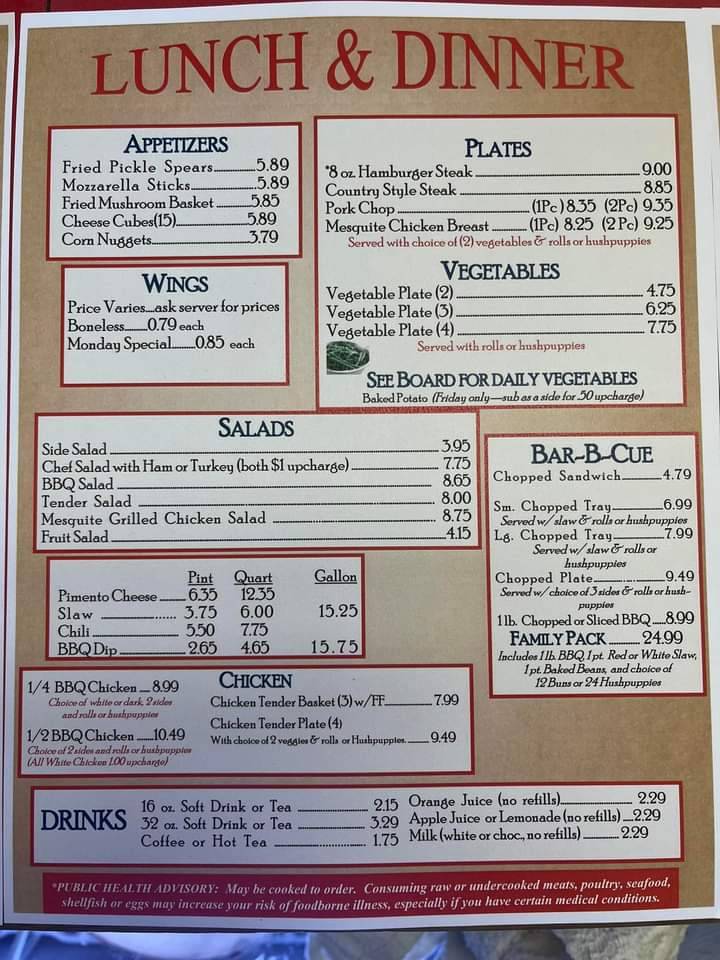 LUNCH & DINNER
APPETIZERS
Fried Pickle Spears.............5.89
Mozzarella Sticks....................5.89
Fried Mushroom Basket ...........5.85
Cheese Cubes(15)......................5.89
Corn Nuggets..............................3.79
WINGS
Price Varies....ask server for prices
Boneless........0.79 each
Monday Special........0.85 each
PLATES
*8 oz. Hamburger Steak ........................ 9.00
Country Style Steak ........................ 8.85
Pork Chop ........................ (1Pc) 8.35 (2Pc) 9.35
Mesquite Chicken Breast ............ (1Pc) 8.25 (2 Pc) 9.25
Served with choice of (2) vegetables & rolls or hushpuppies
VEGETABLES
Vegetable Plate (2) ........................ 4.75
Vegetable Plate (3) ........................ 6.25
Vegetable Plate (4) ........................ 7.75
Served with rolls or hushpuppies
SEE BOARD FOR DAILY VEGETABLES
Baked Potato (Friday only—sub as a side for .50 upcharge)
SALADS
Side Salad ........................ 3.95
Chef Salad with Ham or Turkey (both $1 upcharge) ............ 7.75
BBQ Salad ........................ 8.65
Tender Salad ........................ 8.00
Mesquite Grilled Chicken Salad ........................ 8.75
Fruit Salad ........................ 4.15
BAR-B-CUE
Chopped Sandwich............4.79
Sm. Chopped Tray............6.99
Served w/ slaw & rolls or hushpuppies
Lg. Chopped Tray............7.99
Served w/ slaw & rolls or
hushpuppies
Chopped Plate............9.49
Served w/ choice of 3 sides & rolls or hush-
puppies
1 lb. Chopped or Sliced BBQ....8.99
FAMILY PACK ......... 24.99
Includes 1 lb. BBQ, 1 pt. Red or White Slaw,
1 pt. Baked Beans, and choice of
12 Buns or 24 Hushpuppies
Pint Quart Gallon
Pimento Cheese ........ 6.35 12.35
Slaw ............ 3.75 6.00 15.25
Chili ............ 5.50 7.75
BBQ Dip ............ 2.65 4.65 15.75
CHICKEN
1/4 BBQ Chicken .... 8.99
Choice of white or dark, 2 sides
and rolls or hushpuppies
1/2 BBQ Chicken ......10.49
Choice of 2 sides and rolls or hushpuppies
(All White Chicken 1.00 upcharge)
Chicken Tender Basket (3) w/FF............ 7.99
Chicken Tender Plate (4)
With choice of 2 veggies & rolls or Hushpuppies. ........ 9.49
DRINKS
16 oz. Soft Drink or Tea ............ 2.15
32 oz. Soft Drink or Tea ............ 3.29
Coffee or Hot Tea ............ 1.75
Orange Juice (no refills)............ 2.29
Apple Juice or Lemonade (no refills) ...2.29
Milk (white or choc., no refills) ......... 2.29
*PUBLIC HEALTH ADVISORY: May be cooked to order. Consuming raw or undercooked meats, poultry, seafood,
shellfish or eggs may increase your risk of foodborne illness, especially if you have certain medical conditions.